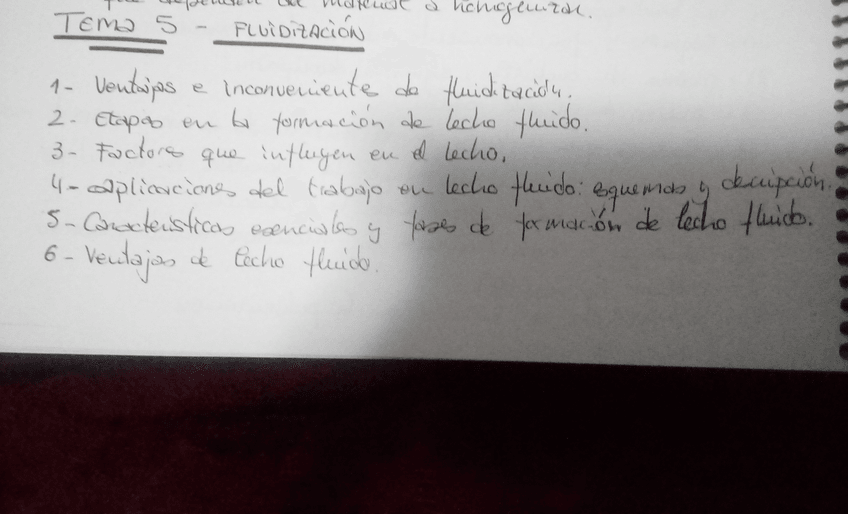 que dependen del material a homogeneizar.
TEMA 5 - FLUIDIZACIÓN
1- Ventajas e inconveniente de fluidización.
2- Etapas en la formación de lecho fluido.
3- Factores que influyen en el lecho.
4- Aplicaciones del trabajo en lecho fluido: esquemas y descripción.
5- Características esenciales y fases de formación de lecho fluido.
6- Ventajas de lecho fluido.